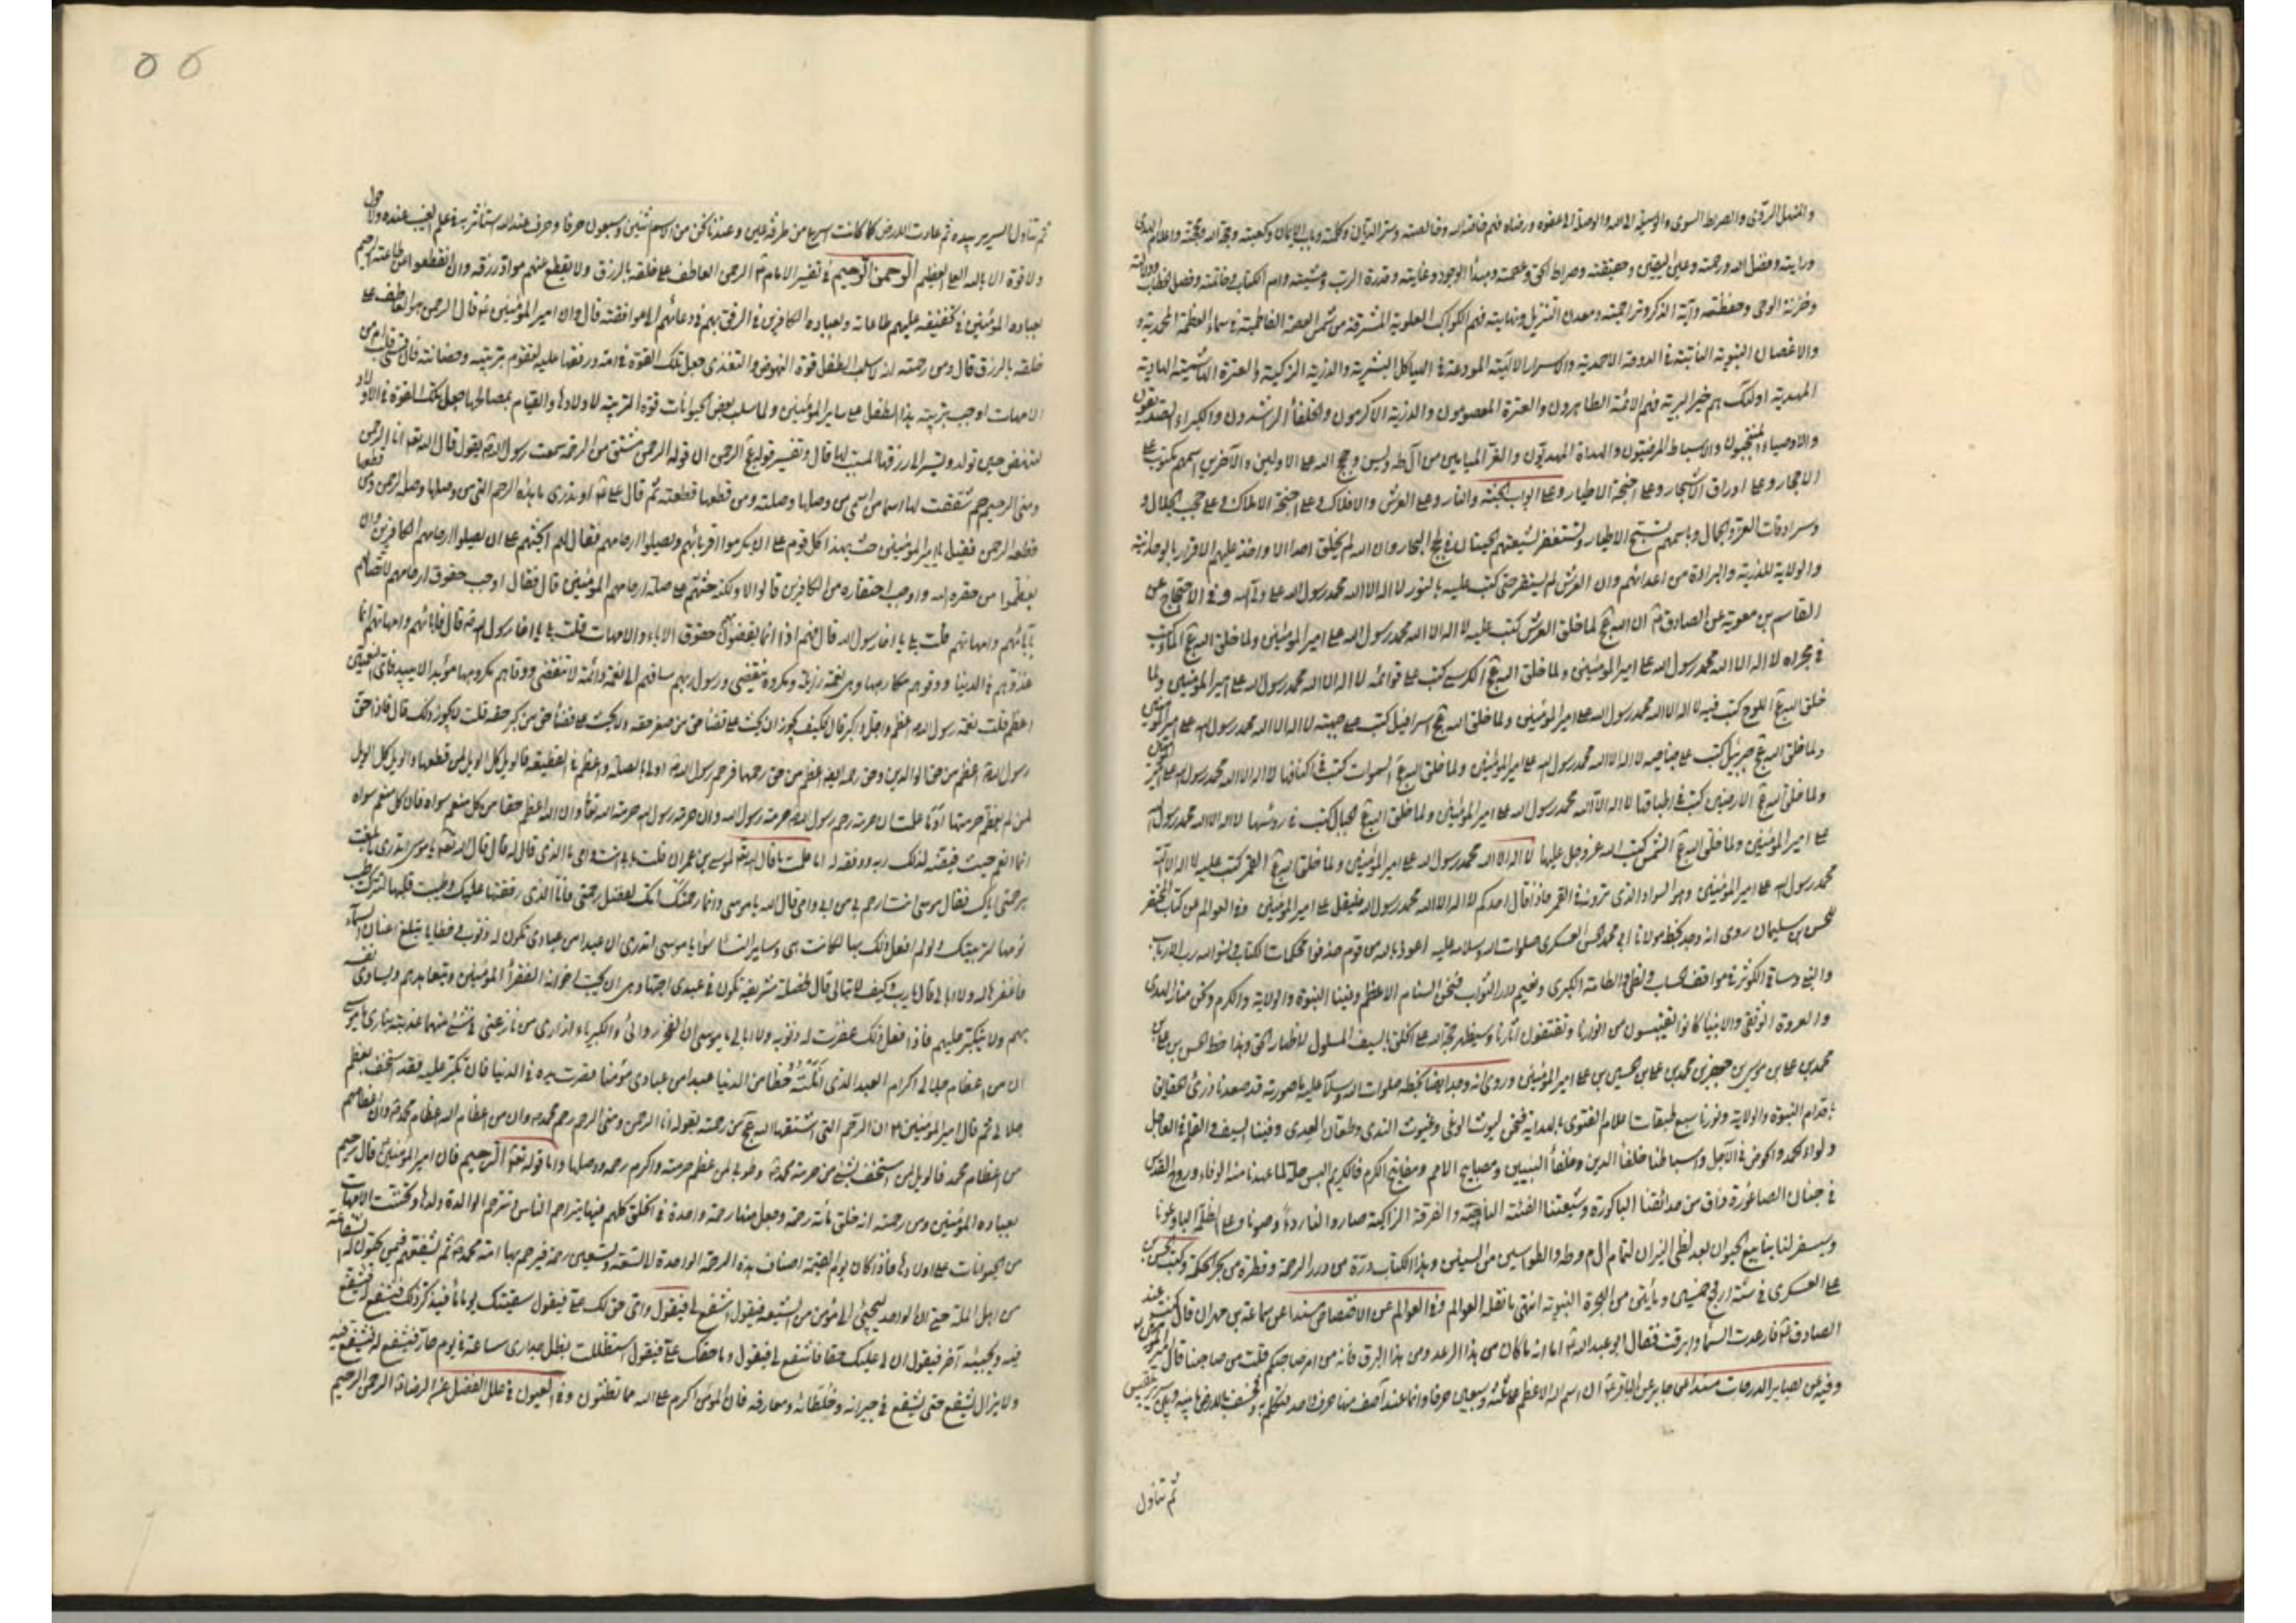 والمنهل الروى والصراط السوى والوسيلة الى الله والوصلة الى عفوه ورضاه فهم خاصة الله وخالصته وسر الديان وكلمته وباب الايمان وكعبته وحجة الله ومحجته واعلام الهدى
ورايته وفضل الله ورحمته وعين اليقين وحقيقته وصراط الحق وعصمته ومبدأ الوجود وغايته وقدرة الرب ومشيته وام الكتاب وخاتمته وفصل الخطاب ودلالته
وخزنة الوحى وحفظته وآية الذكر وتراجمته ومعدن التنزيل ونهايته فهم الكواكب العلوية المشرقة من شمس العصمة الفاطمية فى سماء العظمة المحمدية و
والاغصان النبوية النابتة فى الدوحة الاحمدية والاسرار الالهية المودعة فى الهياكل البشرية والذرية الزكية والعترة الهاشمية الهادية
المهدية اولئك هم خير البرية فهم الائمة الطاهرون والعترة المعصومون والذرية الاكرمون والخلفأ الراشدون والكبراء الصديقون
والاوصياء المنتجبون والاسباط المرضيون والهداة المهديون والغر الميامين من آل طه ويس وحجج الله على الاولين والآخرين اسمهم مكتوب على
الاحجار وعلى اوراق الاشجار وعلى اجنحة الاطيار وعلى ابواب الجنة والنار وعلى العرش والافلاك وعلى اجنحة الاملاك وعلى حجب الجلال و
وسرادقات العز والجمال وباسمهم تسبح الاطيار وتستغفر لشيعتهم الحيتان فى لجج البحار وان الله لم يخلق احدا الا واخذ عليهم الاقرار بالوحدانية
والولاية للذرية والبراءة من اعدائهم وان العرش لم يستقر حتى كتب عليه بالنور لا اله الا الله محمد رسول الله على ولى الله وفى الاحتجاج عن
القاسم بن معوية عن الصادق ع ان الله ع لما خلق العرش كتب عليه لا اله الا الله محمد رسول الله على امير المؤمنين ولما خلق الله ع الماء كتب
فى مجراه لا اله الا الله محمد رسول الله على امير المؤمنين ولما خلق الله ع الكرسى كتب على قوائمه لا اله الا الله محمد رسول الله على امير المؤمنين ولما
خلق الله ع اللوح كتب فيه لا اله الا الله محمد رسول الله على امير المؤمنين ولما خلق الله ع اسرافيل كتب على جبهته لا اله الا الله محمد رسول الله على امير المؤمنين
ولما خلق الله ع جبرئيل كتب على جناحيه لا اله الا الله محمد رسول الله على امير المؤمنين ولما خلق الله ع السموات كتب فى اكنافها لا اله الا الله محمد رسول الله على امير المؤمنين
ولما خلق الله ع الارضين كتب فى اطباقها لا اله الا الله محمد رسول الله على امير المؤمنين ولما خلق الله ع الجبال كتب فى روسها لا اله الا الله محمد رسول الله
على امير المؤمنين ولما خلق الله ع الشمس كتب الله عز وجل عليها لا اله الا الله محمد رسول الله على امير المؤمنين ولما خلق الله ع القمر كتب عليه لا اله الا الله
محمد رسول الله على امير المؤمنين وهو السواد الذى ترونه فى القمر فاذا قال احدكم لا اله الا الله محمد رسول الله فليقل على امير المؤمنين وفى العوالم من كتاب المحتضر
للحسن بن سليمان روى انه وجد بخط مولانا ابى محمد الحسن العسكرى صلوات الله وسلامه عليه اعوذ بالله من قوم حذفوا محكمات الكتاب ونسوا الله رب الارباب
والنبى وساقى الكوثر فى مواقف الحساب ولظى والطامة الكبرى ونعيم دار الثواب فنحن السنام الاعظم وفينا النبوة والولاية والكرم ونحن منار الهدى
والعروة الوثقى والانبيا كانوا يقتبسون من انوارنا ويقتفون آثارنا وسيظهر حجة الله على الخلق بالسيف المسلول لاظهار الحق وهذا خط الحسن بن على بن
محمد بن على بن موسى بن جعفر بن محمد بن على بن الحسين بن على امير المؤمنين وروى انه وجد ايضا بخطه صلوات الله وسلامه عليه ما صورته قد صعدنا ذرى الحقايق
باقدام النبوة والولاية ونورنا سبع طبقات اعلام الفتوى بالهداية فنحن ليوث الوغى وغيوث الندى وطعان العدى وفينا السيف والقلم فى العاجل
ولواء الحمد والحوض فى الآجل واسباطنا خلفأ الدين وخلفأ النبيين ومصابيح الامم ومفاتيح الكرم فالكليم البس حلة لما عهدنا منه الوفاء وروح القدس
فى جنان الصاغورة ذاق من حدائقنا الباكورة وشيعتنا الفئة الناجية والفرقة الزاكية صاروا لنا ردءا وصونا وعلى الظلمة البا وعونا
وسيسفر لنا ينابيع الحيوان بعد لظى النيران لتمام ال م وطه والطواسين من السنين وهذا الكتاب درة من درر الرحمة وقطرة من بحر الحكمة وكتب الحسن بن
على العسكرى فى سنة اربع وخمسين ومأتين من الهجرة النبوية انتهى ما نقله العوالم وفى العوالم عن الاختصاص مسندا عن سماعة بن مهران قال كنت عند
الصادق ع فارعدت السما وابرقت فقال ابو عبد الله ع اما انه ما كان من هذا الرعد ومن هذا البرق فانه من امر صاحبكم قلت من صاحبنا قال امير المؤمنين
وفيه عن بصاير الدرجات مسندا عن جابر عن الباقر ع ان اسم الله الاعظم على ثلثة وسبعين حرفا وانما عند آصف منها حرف واحد فتكلم به فخسف بالارض ما بينه وبين سرير بلقيس
ثم تناول
ثم تناول السرير بيده ثم عادت الارض كما كانت اسرع من طرفة عين وعندنا نحن من الاسم اثنين وسبعون حرفا وحرف عند الله استأثر به فى علم الغيب عنده ولا حول
ولا قوة الا بالله العلى العظيم الرحمن الرحيم فى تفسير الامام ع الرحمن العاطف على خلقه بالرزق ولا يقطع عنهم مواد رزقه وان انقطعوا عن طاعته الرحيم
بعباده المؤمنين فى تخفيفه عليهم طاعاته وبعباده الكافرين فى الرفق بهم فى دعائهم الى موافقته قال وان امير المؤمنين ع قال الرحمن هو العاطف على
خلقه بالرزق قال ومن رحمته انه لما سلب الطفل قوة النهوض والتغذى جعل تلك القوة فى امه ورفقها عليه لتقوم بتربيته وحضانته فان قسى قلب ام من
الامهات اوجب تربية هذا الطفل على ساير المؤمنين ولما سلب بعض الحيوانات قوة التربية لاولادها والقيام بمصالحها جعل تلك القوة فى الاولاد
لتنهض حين تولد وتسير الى رزقها المسبب لها قال وتفسير قوله ع الرحمن ان قوله الرحمن مشتق من الرحمة سمعت رسول الله ص يقول قال الله تع انا الرحمن
وهى الرحم شققت لها اسما من اسمى من وصلها وصلته ومن قطعها قطعته ثم قال على ع اوتدرى ما هذه الرحم التى من وصلها وصله الرحمن ومن قطعها
قطعه الرحمن فقيل يا امير المؤمنين حث بهذا كل قوم على ان يكرموا اقربائهم ويصلوا ارحامهم فقال لهم ايحثهم على ان يصلوا ارحامهم الكافرين وان
يعظموا من حقره الله واوجب احتقاره من الكافرين قالوا لا ولكنه حثهم على صلة ارحامهم المؤمنين قال فقال اوجب حقوق ارحامهم لاتصالهم
بآبائهم وامهاتهم قلت بلى يا اخا رسول الله قال فهم اذا انما يقضون فيهم حقوق الاباء والامهات قلت بلى يا اخا رسول الله ص قال فاباؤهم وامهاتهم انما
غذوهم فى الدنيا ووقوهم مكارهها وهى نعمة زايلة ومكروه ينقضى ورسول ربهم ساقهم الى نعمة دائمة لا تنقضى ووقاهم مكروها مؤبدا لا يبيد فاى النعمتين
اعظم قلت نعمة رسول الله ص اعظم واجل واكبر قال فكيف يجوز ان يحث على قضأ حق من صغر حقه ولا يحث على قضأ حق من كبر حقه قلت لا يجوز ذلك قال فاذا حق
رسول الله ص اعظم من حق الوالدين وحق رحمه ايضا اعظم من حق رحمهما فرحم رسول الله ص اولى بالصلة واعظم فى القطيعة فالويل كل الويل لمن قطعها والويل كل الويل
لمن لم يعظم حرمتها اوما علمت ان حرمة رحم رسول الله ص حرمة رسول الله وان حرمة رسول الله حرمة الله تعا وان الله اعظم حقا من كل منعم سواه فان كل منعم سواه
انما انعم حيث قيضه لذلك ربه ووفقه له اما علمت ما قال الله تع لموسى بن عمران قلت بابى انت وامى ما الذى قال له قال قال الله تع يا موسى اتدرى ما بلغت
برحمتى اياك فقال موسى انت ارحم بى من ابى وامى قال الله يا موسى وانما رحمتك امك لفضل رحمتى فانا الذى رققتها عليك وطيبت قلبها لتترك طيب
نومها لتربيتك ولو لم افعل ذلك بها لكانت هى وساير النسأ سوأ يا موسى اتدرى ان عبدا من عبادى تكون له ذنوب وخطايا تبلغ اعنان السمآء
فاغفرها له ولا ابالى قال يا رب وكيف لا تبالى قال لخصلة شريفة تكون فى عبدى احبها وهى ان يحب اخوانه الفقرأ المؤمنين ويتعاهدهم ويساوى نفسه
بهم ولا يتكبر عليهم فاذا فعل ذلك غفرت له ذنوبه ولا ابالى يا موسى ان الفخر ردائى والكبرياء ازارى من نازعنى فى شئ منهما عذبته بنارى يا موسى
ان من اعظام جلالى اكرام العبد الذى انلته حظا من الدنيا عبدا من عبادى مؤمنا قصرت يده فى الدنيا فان تكبر عليه فقد استخف بعظيم
جلالى ثم قال امير المؤمنين ع ان الرحم التى اشتقها الله ع من رحمته بقوله انا الرحمن وهى الرحم رحم محمد ص وان من اعظام الله اعظام محمد ص وان من اعظام محمد
من اعظام محمد فالويل لمن استخف بشئ من حرمة محمد ص وطوبى لمن عظم حرمته واكرم رحمه ووصلها واما قوله تعا الرحيم فان امير المؤمنين ع قال رحيم
بعباده المؤمنين ومن رحمته انه خلق مأته رحمة وجعل منها رحمة واحدة فى الخلق كلهم فبها يتراحم الناس وترحم الوالدة ولدها وتحننت الامهات
من الحيوانات على اولادها فاذا كان يوم القيمة اضاف هذه الرحمة الواحدة الى تسعة وتسعين رحمة فيرحم بها امة محمد ص ثم يشفعهم فيمن يحبون له الشفاعة
من اهل الملة حتى ان الواحد ليجئ الى مؤمن من الشيعة فيقول اشفع لى فيقول واى حق لك على فيقول سقيتك يوما مأ فيذكر ذلك فيشفع له فيشفع
فيه ويجيئه آخر فيقول ان لى عليك حقا فاشفع لى فيقول وما حقك على فيقول استظللت بظل جدارى ساعة فى يوم حار فيشفع له فيشفع فيه
ولا يزال يشفع حتى يشفع فى جيرانه وخلطائه ومعارفه فان المؤمن اكرم على الله مما تظنون وفى العيون فى علل الفضل عن الرضا ع الرحمن الرحيم